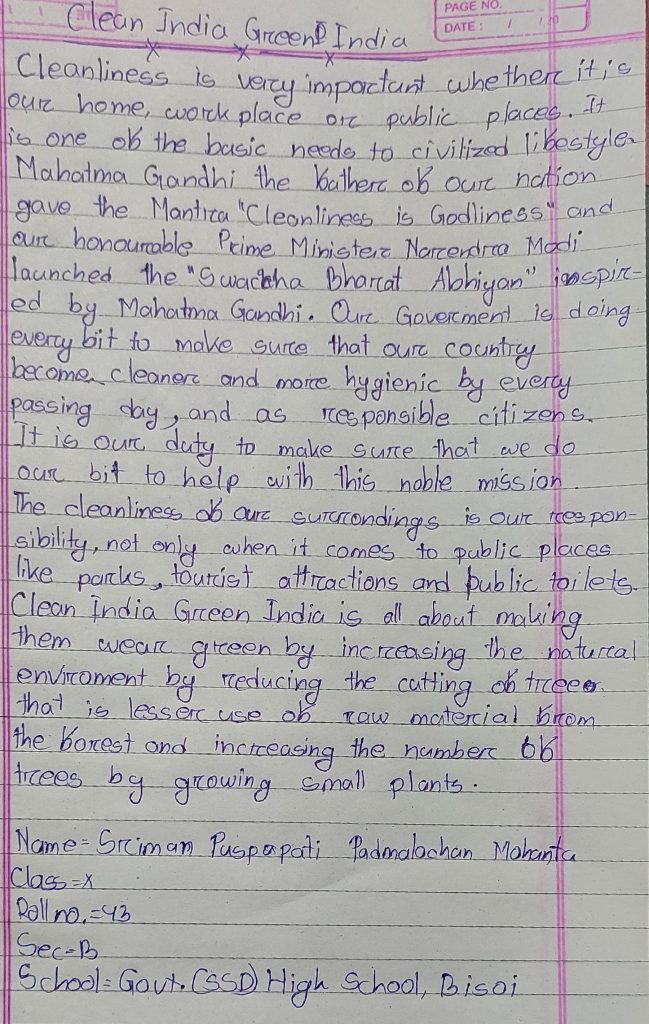 PAGE NO.
DATE: / /20
Clean India Green India
Cleanliness is very important whether it is
our home, work place or public places. It
is one of the basic needs to civilized lifestyle.
Mahatma Gandhi the father of our nation
gave the Mantra "Cleanliness is Godliness" and
our honourable Prime Minister Narendra Modi
launched the "Swachha Bharat Abhiyan" inspir-
ed by Mahatma Gandhi. Our Goverment is doing
every bit to make sure that our country
become cleaner and more hygienic by every
passing day, and as responsible citizens.
It is our duty to make sure that we do
our bit to help with this noble mission.
The cleanliness of our surrondings is our respon-
sibility, not only when it comes to public places
like parks, tourist attractions and public toilets.
Clean India Green India is all about making
them wear green by increasing the natural
enviroment by reducing the cutting of trees.
that is lesser use of raw material from
the forest and increasing the number of
trees by growing small plants.
Name = Sriman Paspapati Padmalochan Mohanta
Class = X
Roll no. = 43
Sec = B
School = Govt. (SSD) High School, Bisoi